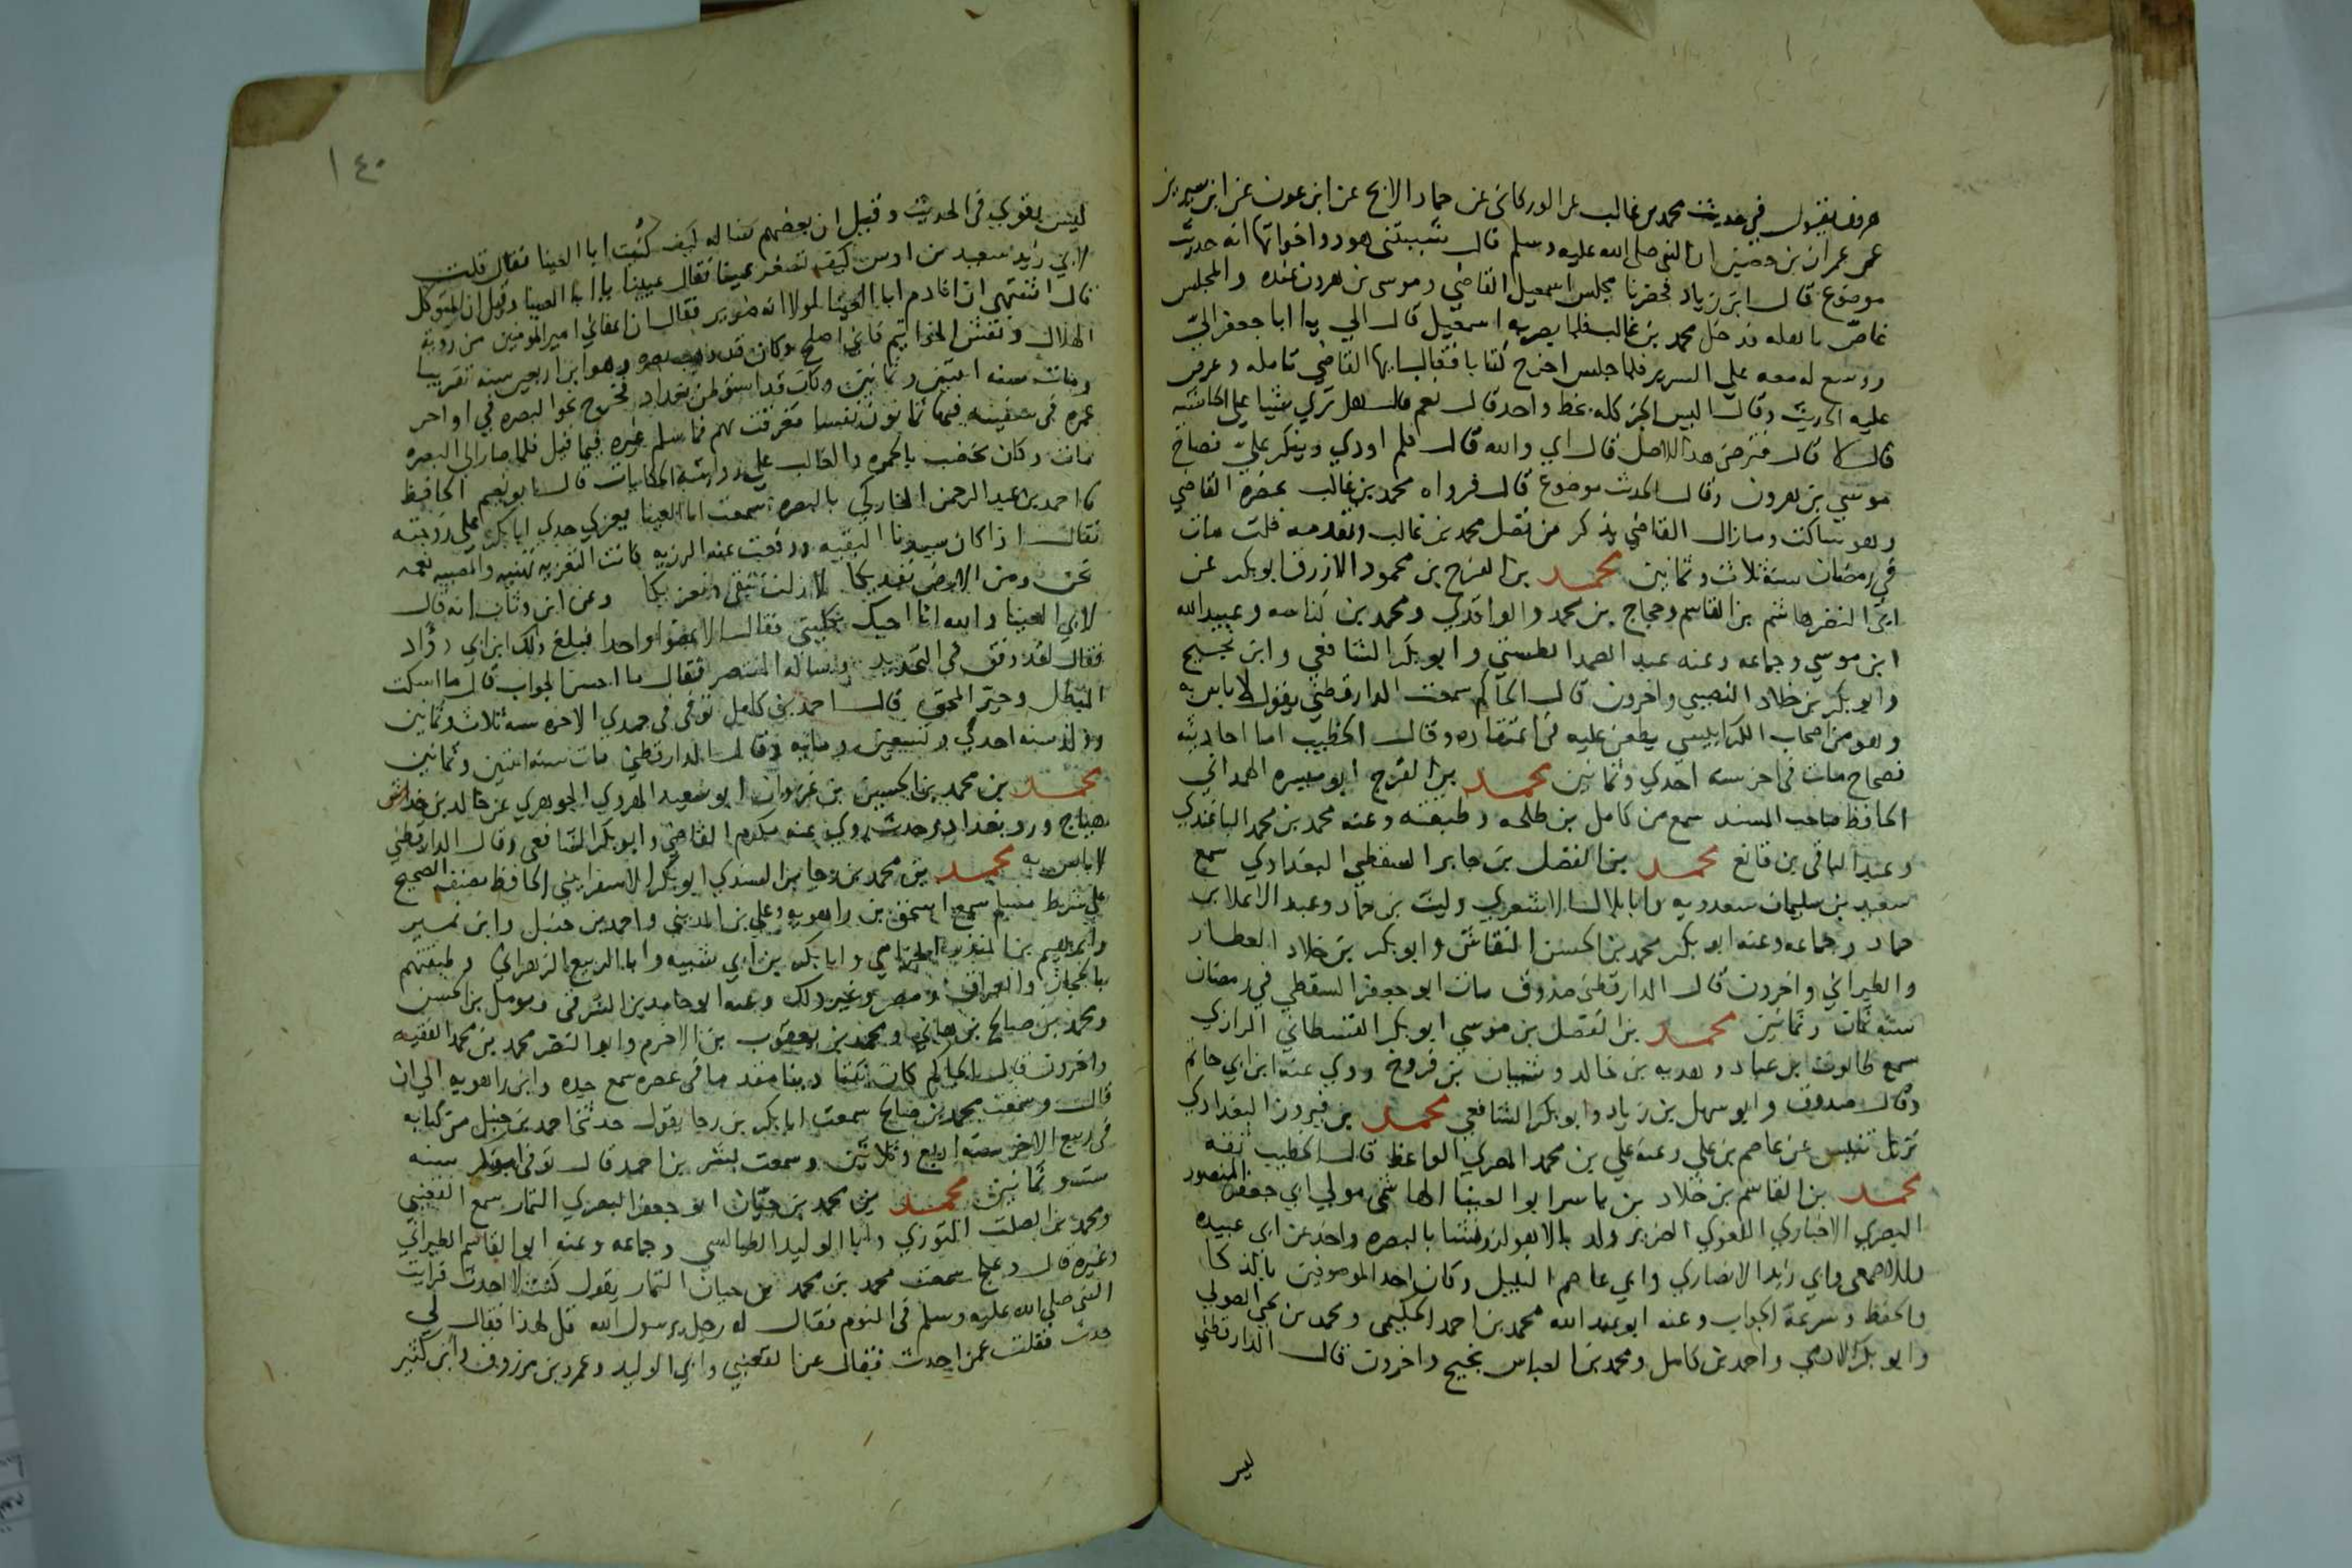 هرون يقول في حديث محمد بن غالب عن الوركاني عن حماد الابح عن ابن عون عن ابن سيرين
عن عمران بن حصين ان النبي صلى الله عليه وسلم قال شيبتني هود واخواتها انه حديث
موضوع قال ابن زياد فحضرنا مجلس اسمعيل القاضي وموسى بن هرون عنده والمجلس
غاص باهله فدخل محمد بن غالب فلما بصر به اسمعيل قال الي يا ابا جعفر الي
ووسع له معه على السرير فلما جلس اخرج كتابا فقال ايها القاضي تامله وعرض
عليه الحديث وقال اليس الجز كله بخط واحد قال نعم قال هل ترى شيا على الحاشية
قال لا قال فترضى هذا الاصل قال اي والله قال فلم اوذي وينكر علي فصاح
موسى بن هرون وقال الحديث موضوع قال فرواه محمد بن غالب بحضرة القاضي
وهو ساكت وما زال القاضي يذكر من فضل محمد بن غالب وتقدمه قلت مات
في رمضان سنة ثلاث وثمانين محمد بن الفرج بن محمود الازرق ابو بكر عن
ابي النضر هاشم بن القاسم وحجاج بن محمد والواقدي ومحمد بن كناسه وعبيد الله
ابن موسى وجماعه وعنه عبد الصمد الطستي وابو بكر الشافعي وابن نجيح
وابو بكر بن خلاد النصيبي واخرون قال الحاكم سمعت الدارقطني يقول لا باس به
وهو من اصحاب الكرابيسي يطعن عليه في اعتقاده وقال الخطيب اما احاديثه
فصحاح مات في اخر سنه احدي وثمانين محمد بن الفرج ابو ميسره الهمداني
الحافظ صاحب المسند سمع من كامل بن طلحه وطبقته وعنه محمد بن محمد الباغندي
وعبد الباقي بن قانع محمد بن الفضل بن جابر السقطي البغدادي سمع
سعيد بن سليمان سعدويه وابا بلال الاشعري وليث بن حماد وعبد الاعلا بن
حماد وجماعه وعنه ابو بكر محمد بن الحسن النقاش وابو بكر بن خلاد العطار
والطبراني واخرون قال الدارقطني صدوق مات ابو جعفر السقطي في رمضان
سنة ثمان وثمانين محمد بن الفضل بن موسى ابو بكر القسطاني الرازي
سمع طالوت بن عباد وهدبه بن خالد وشيبان بن فروخ روي عنه ابن ابي حاتم
وقال صدوق وابو سهل بن زياد وابو بكر الشافعي محمد بن فيروز البغدادي
نزيل تنيس عن عاصم بن علي وعنه علي بن محمد المصري الواعظ قال الخطيب ثقه
محمد بن القاسم بن خلاد بن ياسر ابو العينا الهاشمي مولي ابي جعفر المنصور
البصري الاخباري اللغوي الضرير ولد بالاهواز ونشا بالبصره واخذ عن ابي عبيده
والاصمعي وابي زيد الانصاري وابي عاصم النبيل وكان احد الموصوفين بالذكا
والحفظ وسرعة الجواب وعنه ابو عبد الله محمد بن احمد الحكيمي ومحمد بن يحيى الصولي
وابو بكر الادمي واحمد بن كامل ومحمد بن العباس بن نجيح واخرون قال الدارقطني
ليس
١٤٠
ليس بقوي في الحديث وقيل ان بعضهم ساله كيف كنيت ابا العينا فقال قلت
لابي زيد سعيد بن اوس كيف تصغر عينا فقال عيينا يا ابا العينا وقيل ان المتوكل
قال اشتهي ان انادم ابا العينا لولا انه ضرير فقال ان اعفاني امير المومنين من روية
الهلال ونقش الخواتيم فاني اصلح وكان قد ذهب بصره وهو ابن اربعين سنه تقريبا
ومات سنه اثنتين وثمانين وكان قد استوطن بغداد فخرج نحو البصره في اواخر
عمره في سفينه فيها ثمانون نفسا فغرقت بهم فما سلم غيره فيما قيل فلما صار الى البصره
مات وكان يخضب بالحمره والغالب على روايته الحكايات قال ابو نعيم الحافظ
ثنا احمد بن عبد الرحمن الخاركي بالبصره سمعت ابا العينا يعزي جدي ابا بكر على زوجته
فقال اذا كان سيدنا البقيه ودفعت عنه الرزيه كانت التعزيه تهنيه والمصيبه نعمه
نحن ومن الارض نفديكا لا زلت تبقى ونعزيكا وعن ابن وثاب انه قال
لابي العينا والله انا احبك بكليتي فقال الا عضوا واحدا فبلغ ذلك ابن ابي دؤاد
فقال لقد وفق في التحديد وساله المنتصر فقال ما احسن الجواب قال ما اسكت
المبطل وحير المحق قال احمد بن كامل توفي في جمدي الاخره سنه ثلاث وثمانين
وولد سنه احدي وتسعين ومايه وقال الدارقطني مات سنه اثنتين وثمانين
محمد بن محمد بن الحسين بن غزوان ابو سعيد الهروي الجوهري عن خالد بن خداش
ورد بغداد وحدث روي عنه مكرم القاضي وابو بكر الشافعي وقال الدارقطني
لا باس به محمد بن محمد بن رجا بن السندي ابو بكر الاسفرايني الحافظ مصنف الصحيح
على شرط مسلم سمع اسحق بن راهويه وعلي بن المديني واحمد بن حنبل وابن نمير
وابرهيم بن المنذر الحزامي وابا بكر بن ابي شيبه وابا الربيع الزهراني وطبقتهم
بالحجاز والعراق ومصر وغير ذلك وعنه ابو حامد بن الشرقي ومومل بن الحسن
ومحمد بن صالح بن هاني ومحمد بن يعقوب بن الاخرم وابو النضر محمد بن محمد الفقيه
واخرون قال الحاكم كان ثبتا دينا مقدما في عصره سمع جده وابن راهويه الي ان
قال وسمعت محمد بن صالح سمعت ابا بكر بن رجا يقول حدثنا احمد بن حنبل من كتابه
في ربيع الاخر سنة اربع وثلاثين وسمعت بشر بن احمد قال توفي ابو بكر سنه
ست وثمانين محمد بن محمد بن حيان ابو جعفر البصري التمار سمع القعنبي
ومحمد بن الصلت التوزي وابا الوليد الطيالسي وجماعه وعنه ابو القاسم الطبراني
وغيره قال دعلج سمعت محمد بن محمد بن حيان التمار يقول كنت لا احدث فرايت
النبي صلى الله عليه وسلم في النوم فقال له رجل يرسول الله قل لهذا فقال لي
حدث فقلت عمن احدث فقال عن القعنبي وابي الوليد وعمرو بن مرزوق وابن كثير